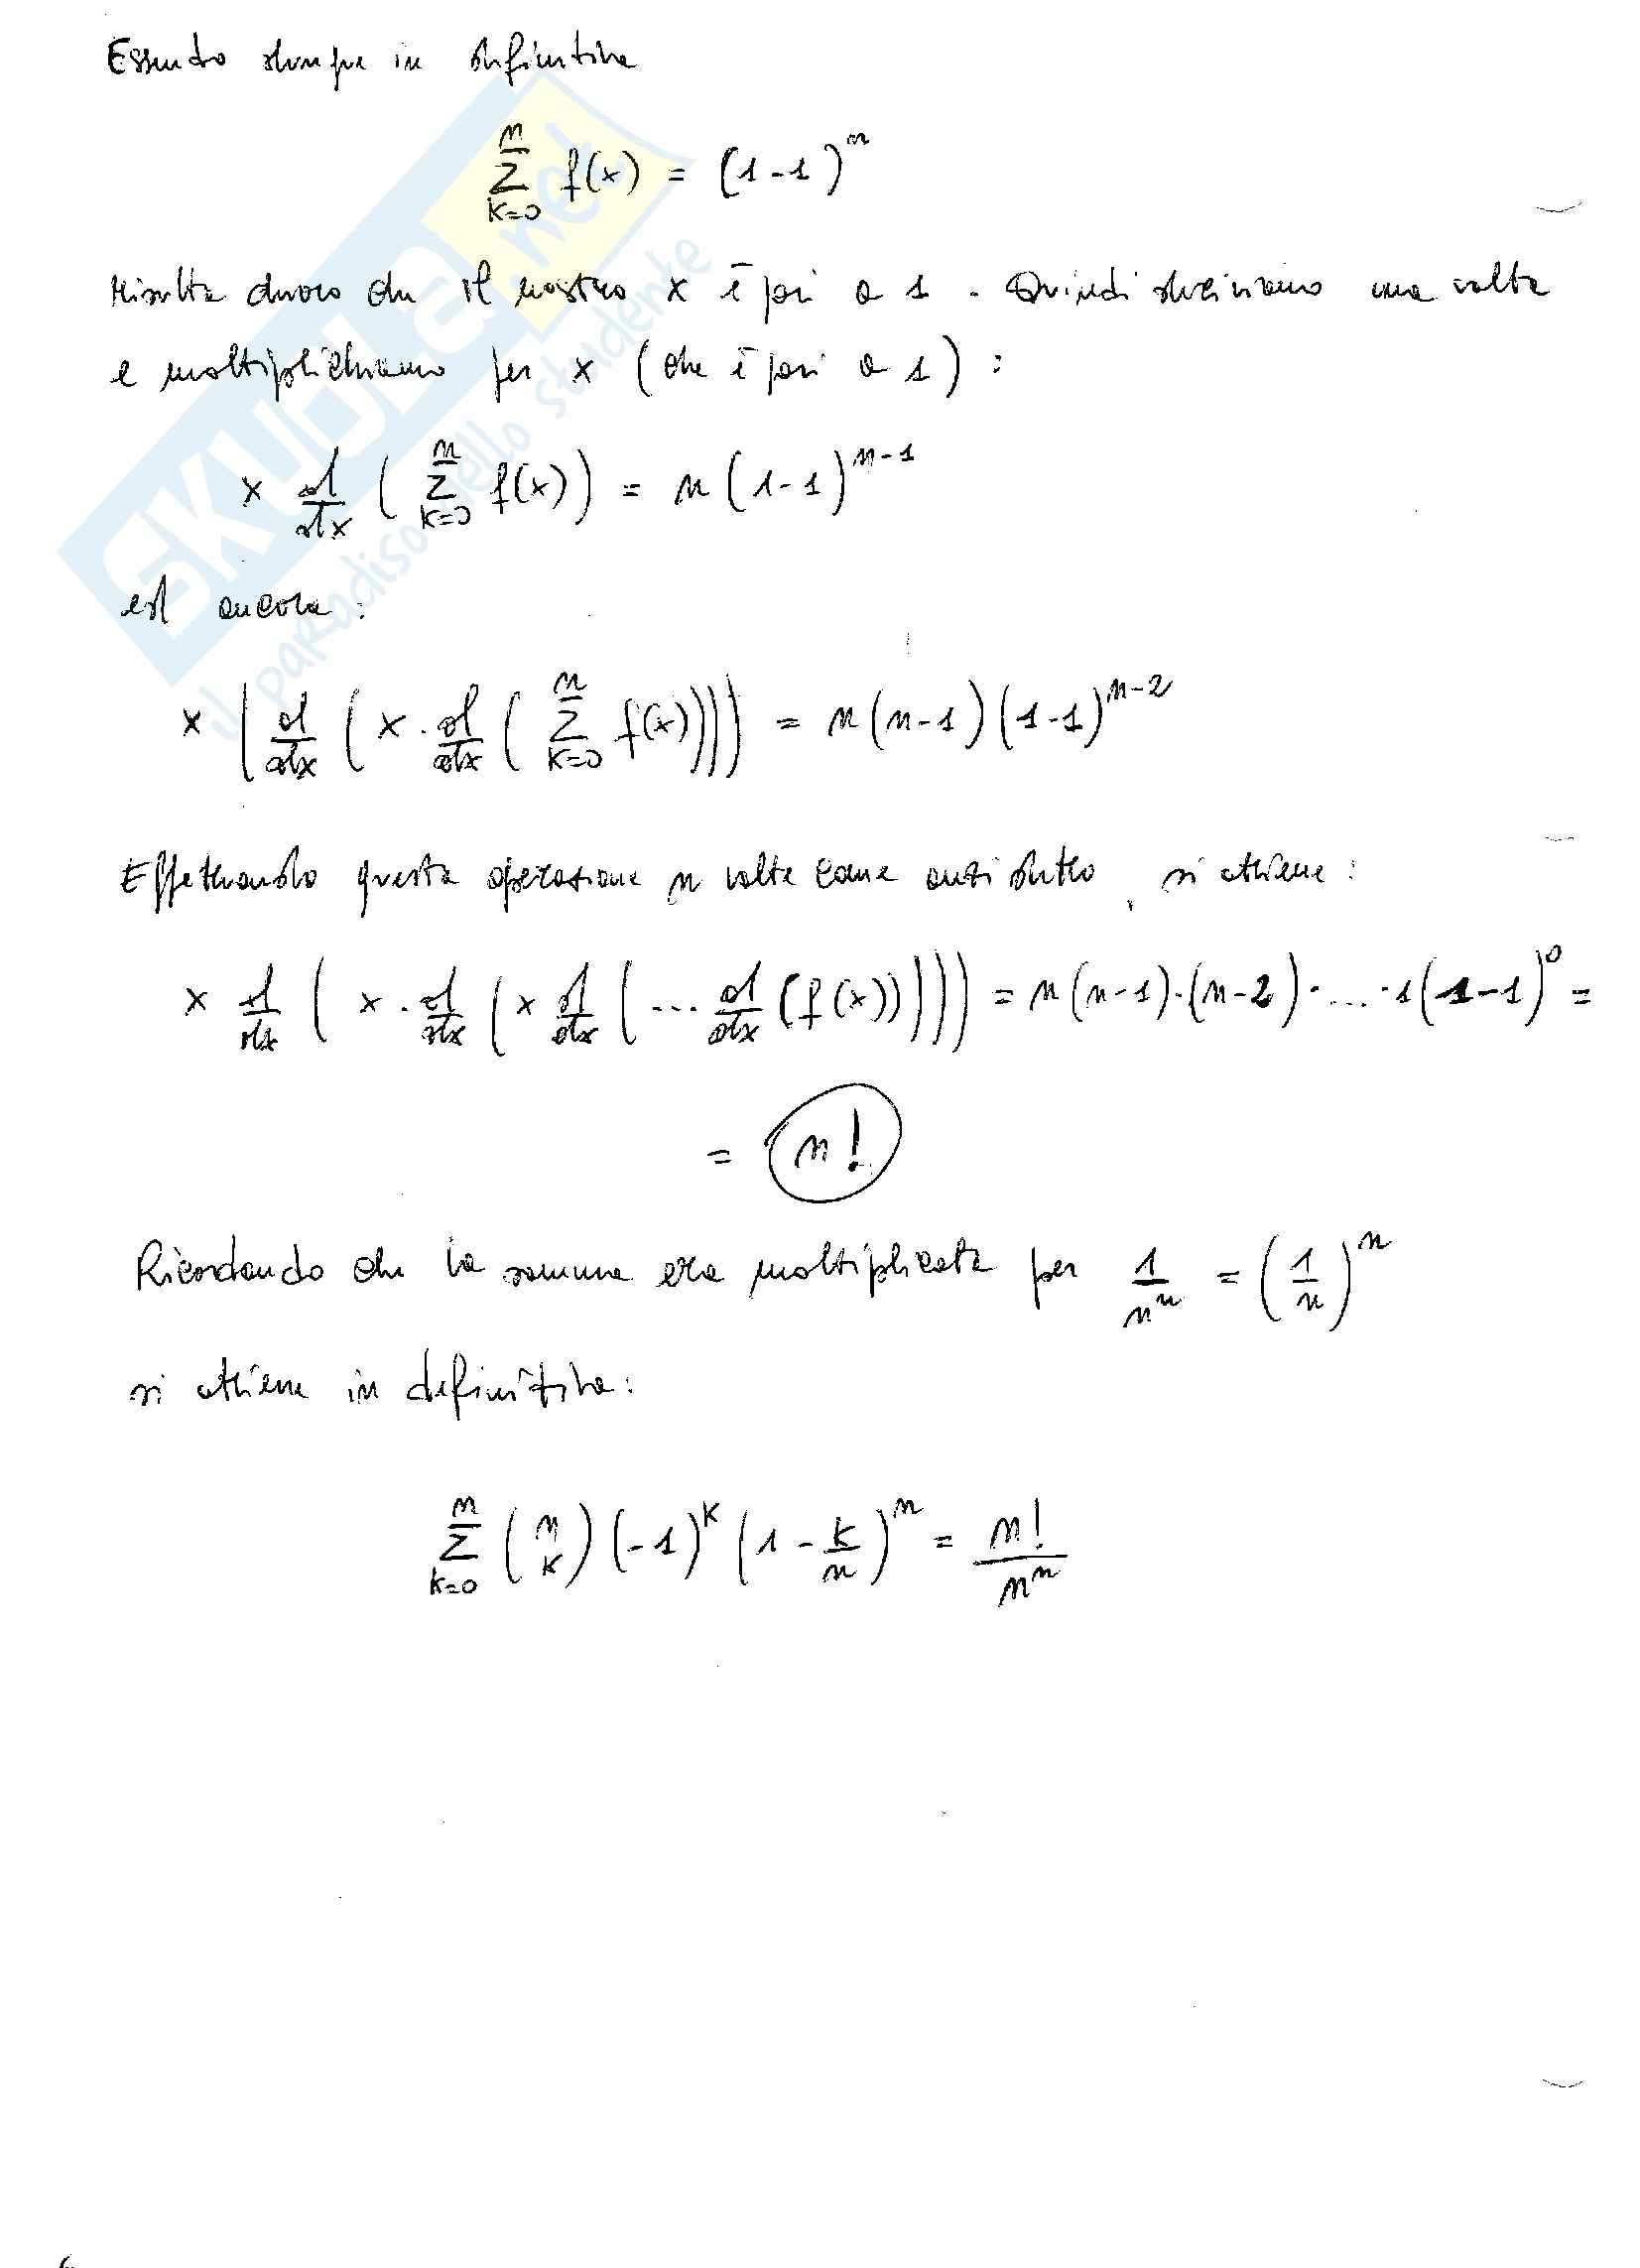 Essendo dunque in definitiva
∑_{k=0}^{n} f(x) = (1-1)^n
risulta chiaro che il nostro x è pari a 1. Quindi deriviamo una volta
e moltiplichiamo per x (che è pari a 1):
x d/dx (∑_{k=0}^{n} f(x)) = n(1-1)^{n-1}
ed ancora:
x (d/dx (x · d/dx (∑_{k=0}^{n} f(x)))) = n(n-1)(1-1)^{n-2}
Effettuando questa operazione n volte come anzidetto, si ottiene:
x d/dx (x · d/dx (x d/dx (... d/dx (f(x))))) = n(n-1)·(n-2)·...·1(1-1)^0 =
= n!
Ricordando che la somma era moltiplicata per 1/n^n = (1/n)^n
si ottiene in definitiva:
∑_{k=0}^{n} (n k) (-1)^k (1 - k/n)^n = n!/n^n
SKUOLA.net
il paradiso dello studente